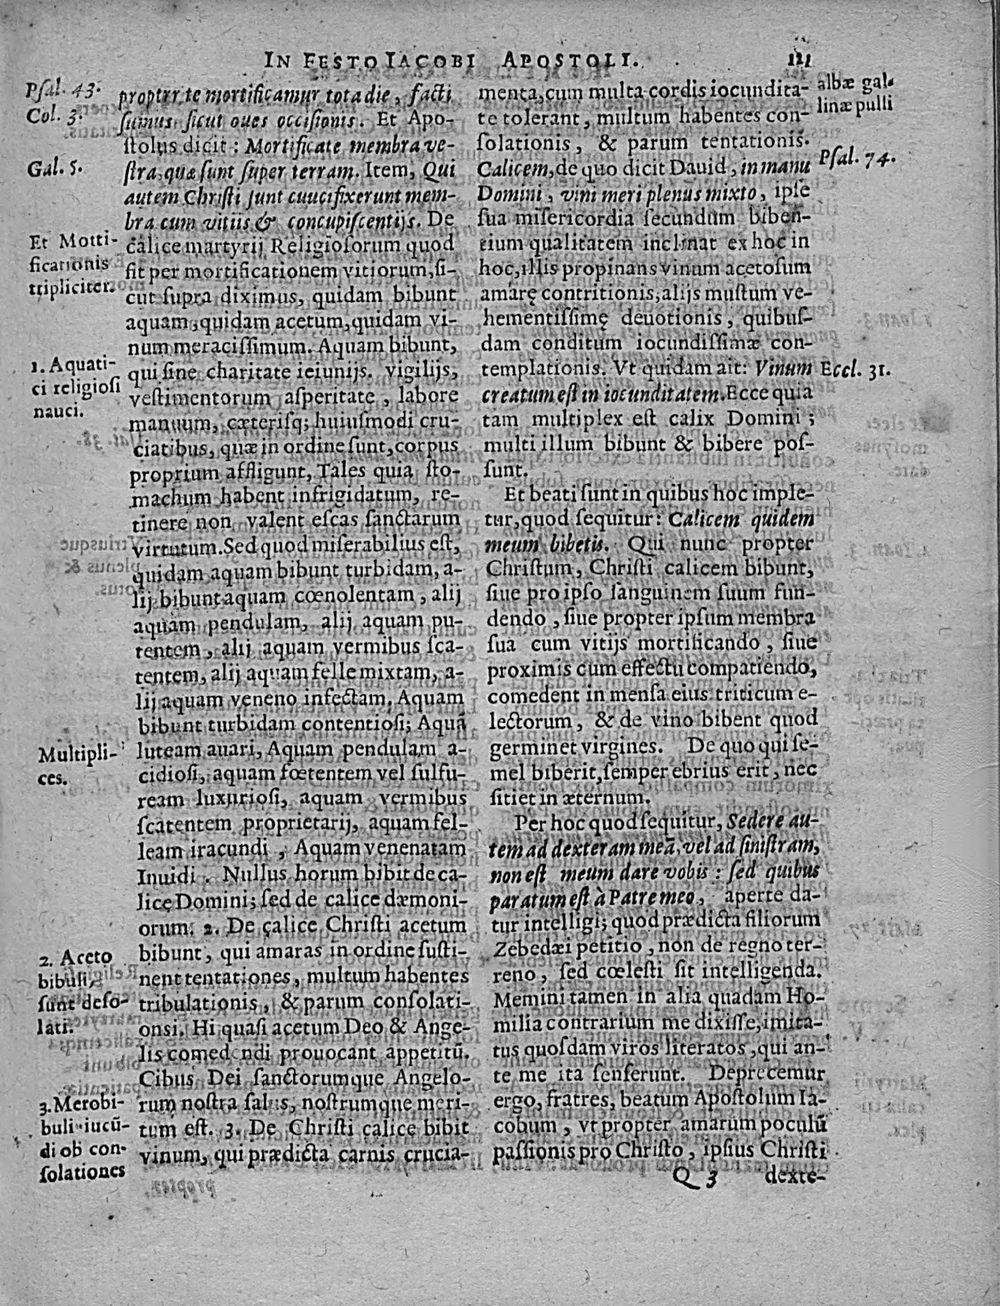 IN FESTO IACOBI APOSTOLI. 111
Psal. 43.
Col. 3.
Gal. 5.
Et Motti-
ficationis
tripliciter.
1. Aquati-
ci religiosi
nauci.
Multipli-
ces.
2. Aceto
bibuli,
sunt deso-
lati.
3. Merobi-
buli iucū-
di ob con-
solationes
proptrr te mortificamur tota die, facti
sumus sicut oues occisionis. Et Apo-
stolus dicit: Mortificate membra ve-
stra, quæ sunt super terram. Item, Qui
autem Christi sunt cuucifixerunt mem-
bra cum vitiis & concupiscentijs. De
calice martyrij Religiosorum quod
fit per mortificationem vitiorum, si-
cut supra diximus, quidam bibunt
aquam, quidam acetum, quidam vi-
num meracissimum. Aquam bibunt,
qui sine charitate ieiunijs. vigilijs,
vestimentorum asperitate, labore
manuum, cæterisq; huiusmodi cru-
ciatibus, quæ in ordine sunt, corpus
proprium affligunt, Tales quia sto-
machum habent infrigidatum, re-
tinere non valent escas sanctarum
virtutum. Sed quod miserabilius est,
quidam aquam bibunt turbidam, a-
lij bibunt aquam cœnolentam, alij
aquam pendulam, alij aquam pu-
tentem, alij aquam vermibus sca-
tentem, alij aquam felle mixtam, a-
lij aquam veneno infectam, Aquam
bibunt turbidam contentiosi; Aquā
luteam auari, Aquam pendulam a-
cidiosi, aquam fœtentem vel sulfu-
ream luxuriosi, aquam vermibus
scatentem proprietarij, aquam fel-
leam iracundi, Aquam venenatam
Inuidi. Nullus horum bibit de ca-
lice Domini; sed de calice dæmoni-
orum. 2. De calice Christi acetum
bibunt, qui amaras in ordine susti-
nent tentationes, multum habentes
tribulationis, & parum consolati-
onsi. Hi quasi acetum Deo & Ange-
lis comedendi prouocant appetitū.
Cibus Dei sanctorumque Angelo-
rum nostra salus, nostrumque meri-
tum est. 3. De Christi calice bibit
vinum, qui prædicta carnis crucia-
menta, cum multa cordis iocundita-
te tolerant, multum habentes con-
solationis, & parum tentationis.
Calicem, de quo dicit Dauid, in manu
Domini, vini meri plenus mixto, ipse
sua misericordia secundum biben-
tium qualitatem inclinat ex hoc in
hoc, illis propinans vinum acetosum
amarę contritionis, alijs mustum ve-
hementissimę deuotionis, quibus-
dam conditum iocundissimæ con-
templationis. Vt quidam ait: Vinum
creatum est in iocunditatem. Ecce quia
tam multiplex est calix Domini;
multi illum bibunt & bibere pos-
sunt.
Et beati sunt in quibus hoc imple-
tur, quod sequitur: Calicem quidem
meum bibetis. Qui nunc propter
Christum, Christi calicem bibunt,
siue pro ipso sanguinem suum fun-
dendo, siue propter ipsum membra
sua cum vitijs mortificando, siue
proximis cum effectu compatiendo,
comedent in mensa eius triticum e-
lectorum, & de vino bibent quod
germinet virgines. De quo qui se-
mel biberit, semper ebrius erit, nec
sitiet in æternum.
Per hoc quod sequitur, Sedere au-
tem ad dexteram meā, vel ad sinistram,
non est meum dare vobis: sed quibus
paratum est à Patre meo, aperte da-
tur intelligi; quod prædicta filiorum
Zebedæi petitio, non de regno ter-
reno, sed cœlesti sit intelligenda.
Memini tamen in alia quadam Ho-
milia contrarium me dixisse, imita-
tus quosdam viros literatos, qui an-
te me ita senserunt. Deprecemur
ergo, fratres, beatum Apostolum Ia-
cobum, vt propter amarum poculū
passionis pro Christo, ipsius Christi
albæ gal-
linæ pulli
Psal. 74.
Eccl. 31.
Q 3 dexte-